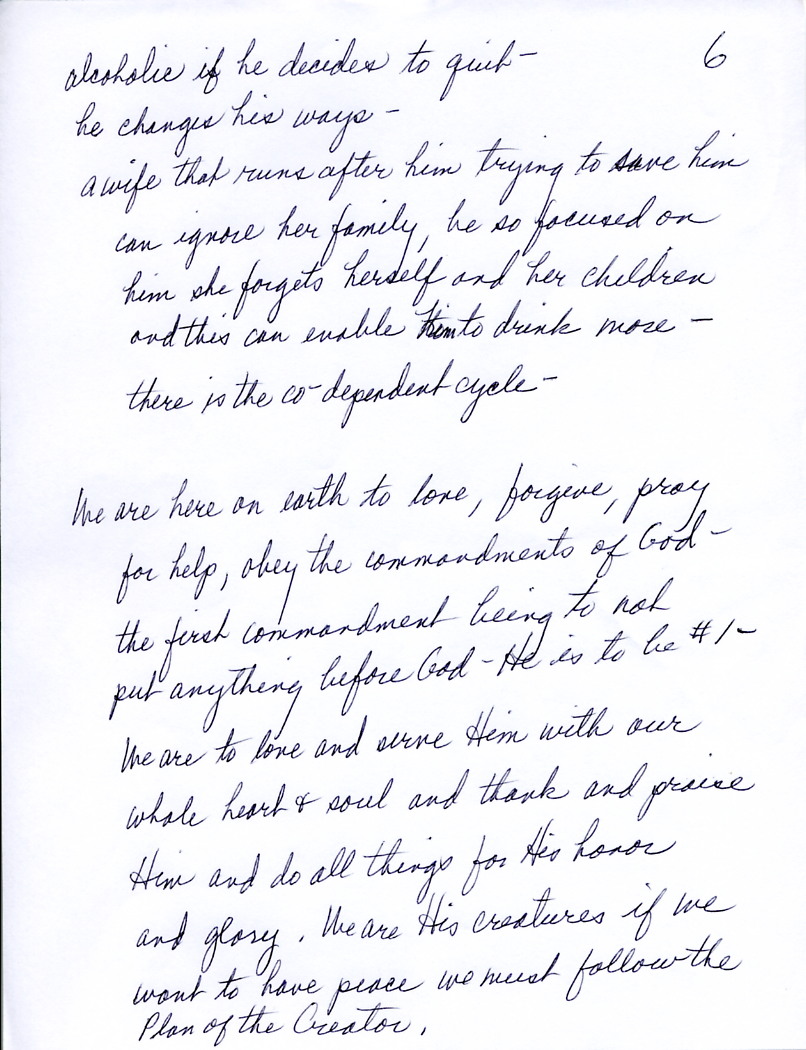 6
alcoholic if he decides to quit -
he changes his ways -
a wife that runs after him trying to save him
can ignore her family, be so focused on
him she forgets herself and her children
and this can enable him to drink more -
there is the co-dependent cycle -
We are here on earth to love, forgive, pray
for help, obey the commandments of God -
the first commandment being to not
put anything before God - He is to be #1 -
We are to love and serve Him with our
whole heart & soul and thank and praise
Him and do all things for His honor
and glory. We are His creatures if we
want to have peace we must follow the
Plan of the Creator.